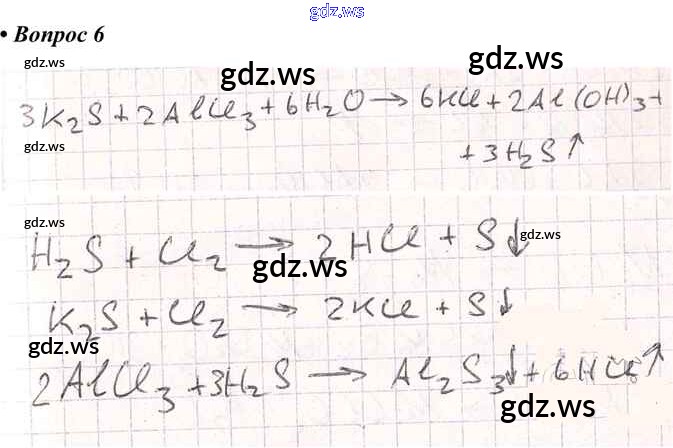 gdz.ws
• Вопрос 6
gdz.ws
gdz.ws
gdz.ws
3K₂S + 2AlCl₃ + 6H₂O → 6KCl + 2Al(OH)₃ +
gdz.ws
+ 3H₂S↑
gdz.ws
gdz.ws
H₂S + Cl₂ → 2HCl + S↓
gdz.ws
K₂S + Cl₂ → 2KCl + S↓
gdz.ws
2AlCl₃ + 3H₂S → Al₂S₃↓ + 6HCl↑
gdz.ws